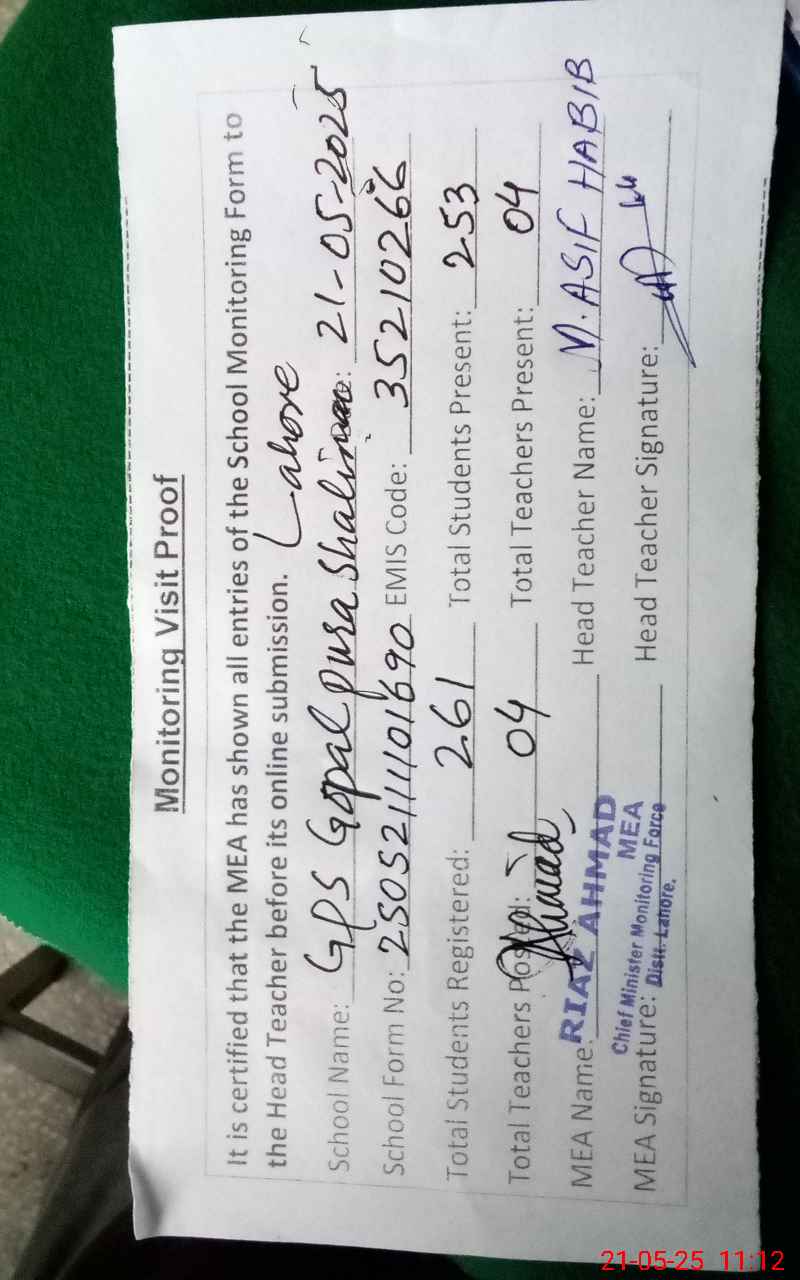 Monitoring Visit Proof
It is certified that the MEA has shown all entries of the School Monitoring Form to
the Head Teacher before its online submission. Lahore
School Name: GPS Gopal pura Shalimar Date: 21-05-2025
School Form No: 25052111101690 EMIS Code: 35210266
Total Students Registered: 261 Total Students Present: 253
Total Teachers Posted: 04 Total Teachers Present: 04
Ahmad
MEA Name: RIAZ AHMAD Head Teacher Name: M. ASIF HABIB
MEA
Chief Minister Monitoring Force
MEA Signature: Distt. Lahore. Head Teacher Signature:
21-05-25 11:12